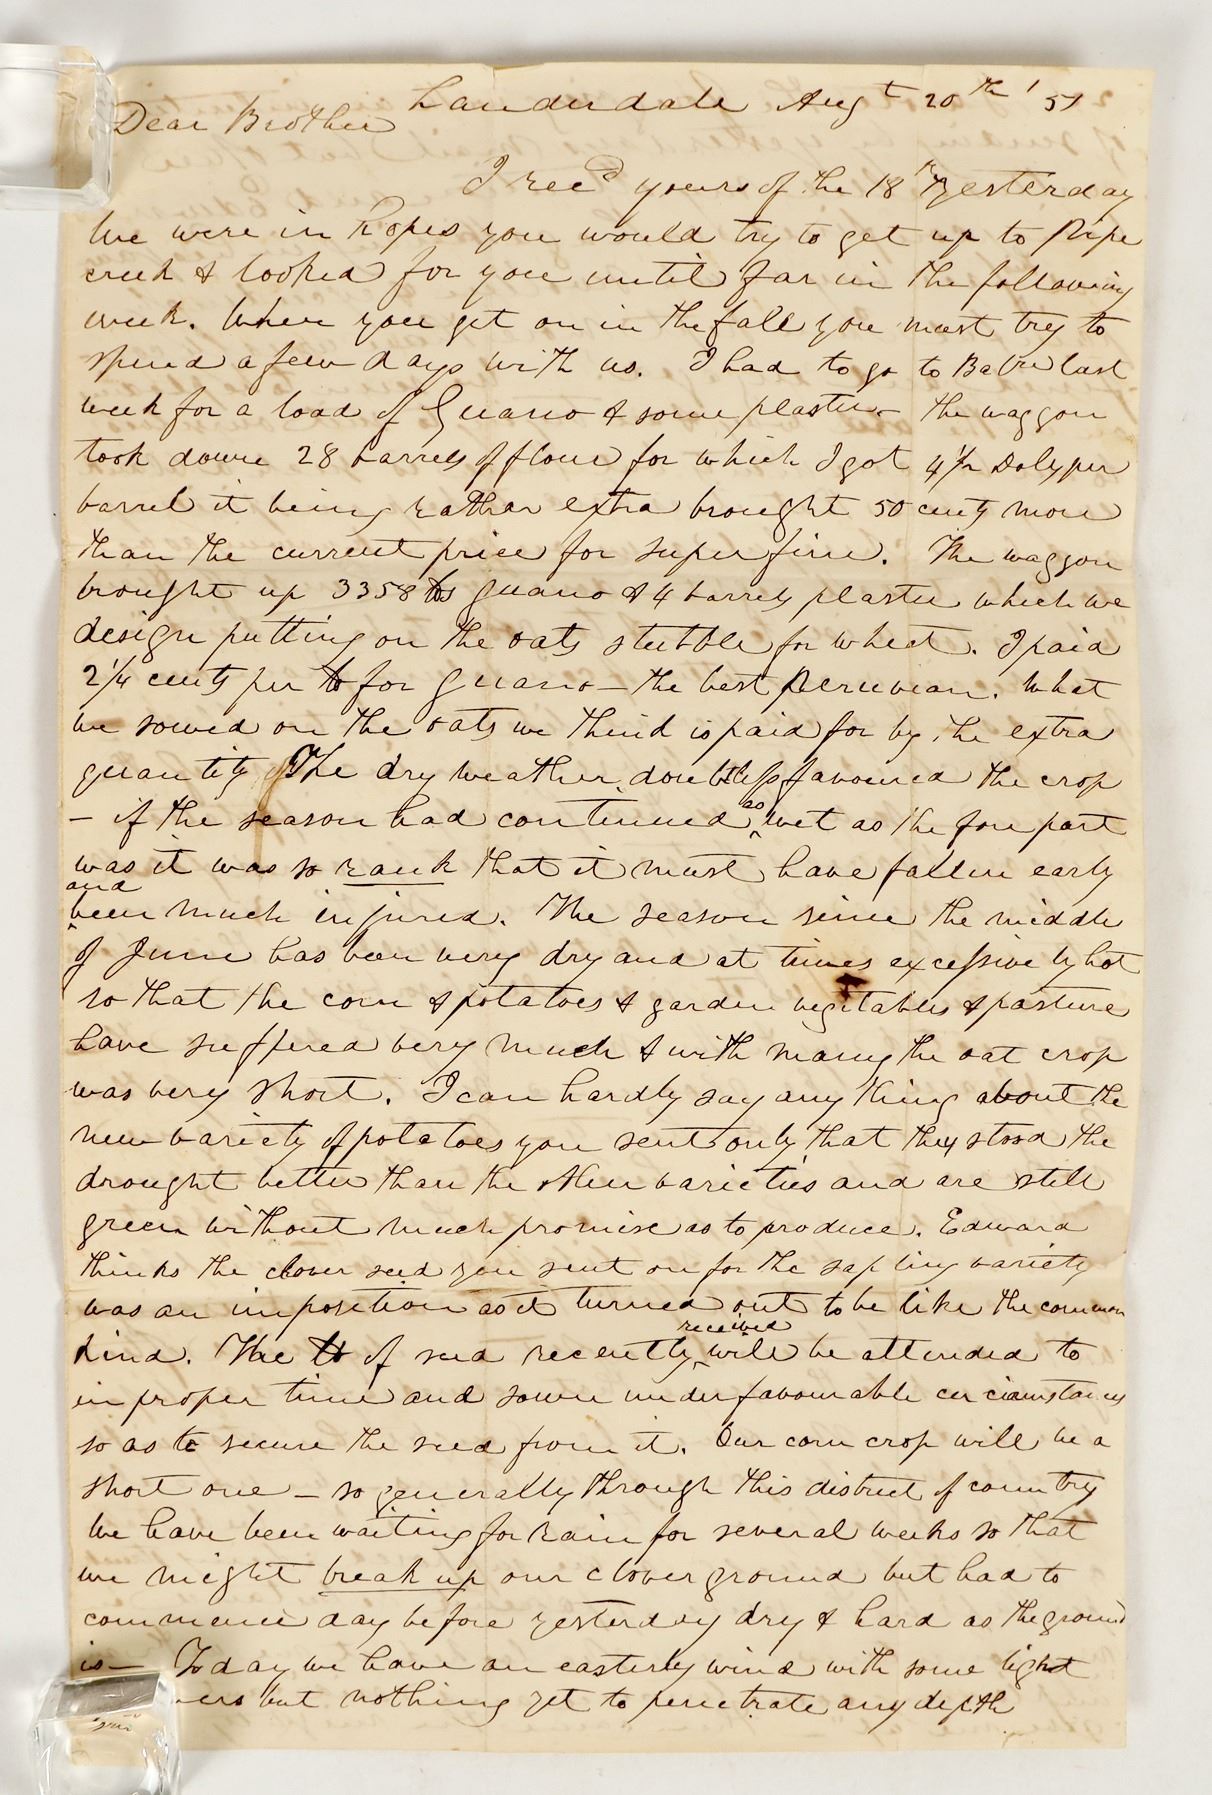 Lauderdale Augt 20th '51
Dear Brother
I recd yours of the 18th yesterday
We were in hopes you would try to get up to Pipe
creek & looked for you until far in the following
week. When you get on in the fall you must try to
spend a few days with us. I had to go to Balre last
week for a load of Guano & some plaster — the waggon
took down 28 barrels of flour for which I got 4 1/2 Dols per
barrel it being rather extra brought 50 cents more
than the current price for superfine. The waggon
brought up 3358 lbs guano & 4 barrels plaster which we
design putting on the oats stubble for wheat. I paid
2 1/4 cents per lb for guano — the best Peruvian. What
we sowed on the oats we think is paid for by the extra
quantity. The dry weather doubtless favoured the crop
— if the season had continued as wet as the fore part
was it was so rank that it must have fallen early
and been much injured. The season since the middle
of June has been very dry and at times excessively hot
so that the corn & potatoes & garden vegitables & pasture
have suffered very much & with many the oat crop
was very short. I can hardly say any thing about the
new variety of potatoes you sent only that they stood the
drought better than the other varieties and are still
green without much promise as to produce. Edward
thinks the clover seed you sent on for the sapling variety
was an imposition as it turned out to be like the common
kind. The lb of seed recently received will be attended to
in proper time and sown under favourable circumstances
so as to secure the seed from it. Our corn crop will be a
short one — so generally through this district of country
We have been waiting for rain for several weeks so that
we might break up our clover ground but had to
commence day before yesterday dry & hard as the ground
is — Today we have an easterly wind with some light
but nothing yet to penetrate any depth